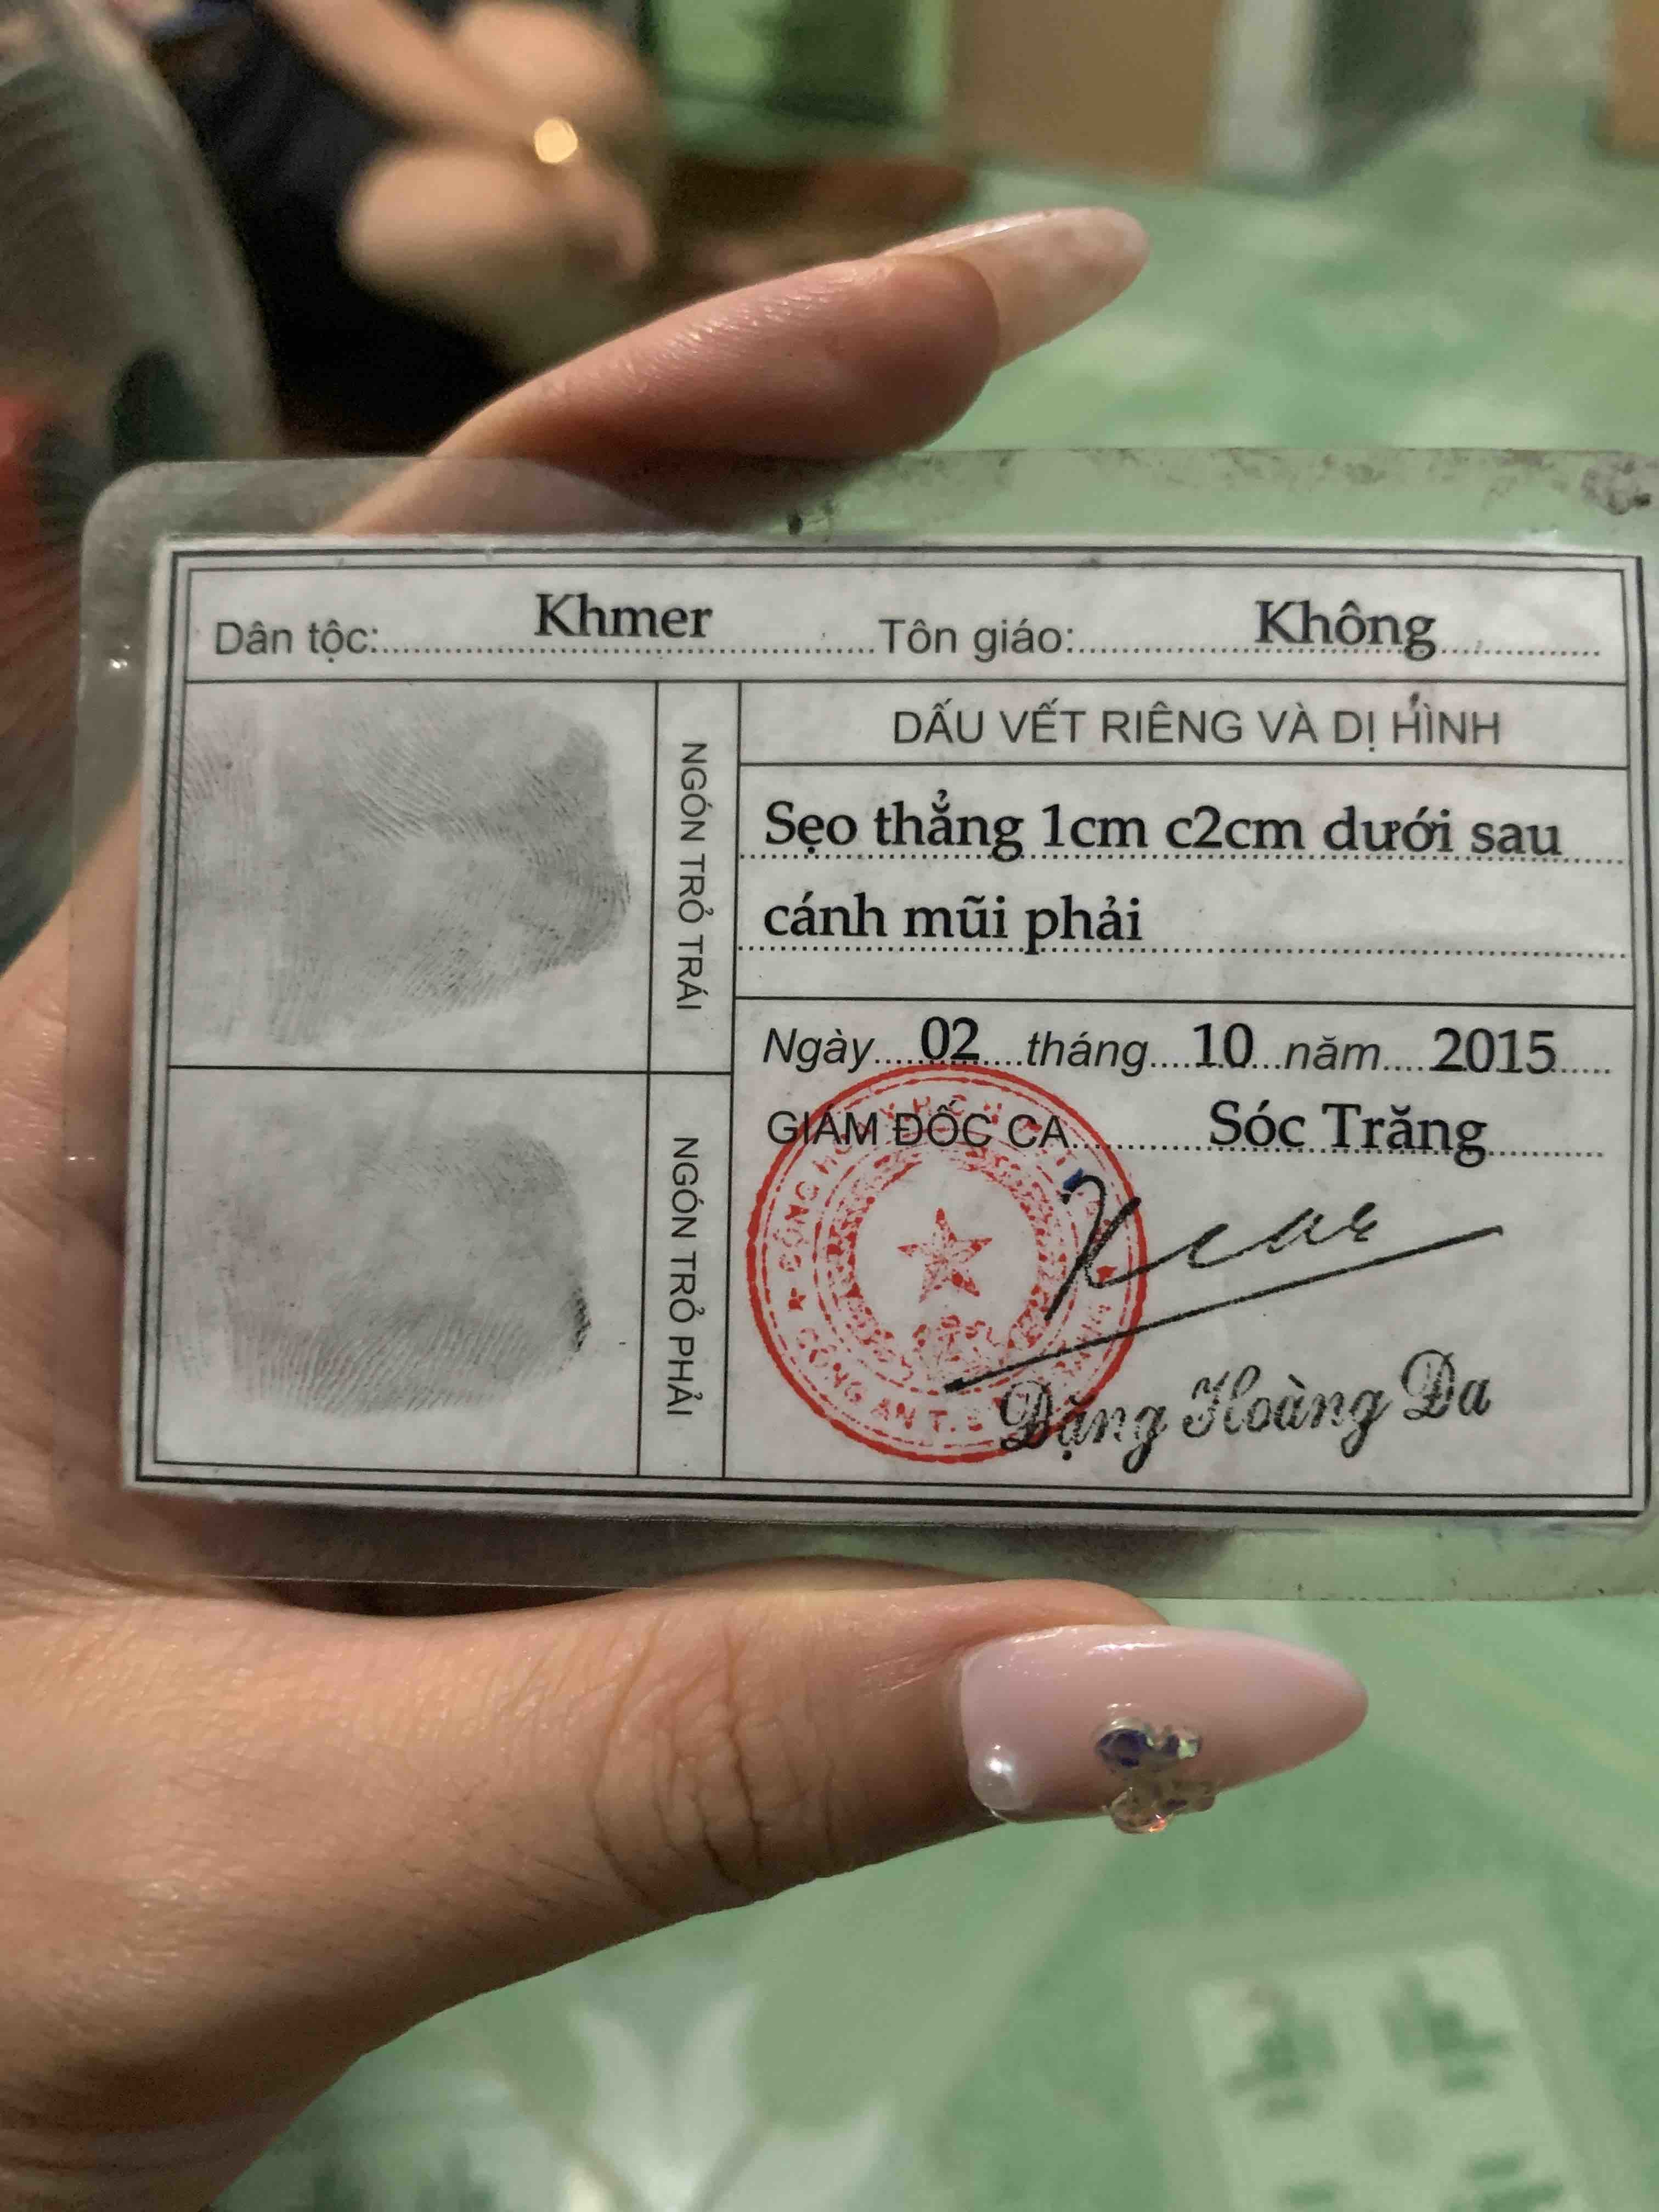 Dân tộc: Khmer Tôn giáo: Không
NGÓN TRỎ TRÁI
DẤU VẾT RIÊNG VÀ DỊ HÌNH
Sẹo thẳng 1cm c2cm dưới sau
cánh mũi phải
Ngày 02 tháng 10 năm 2015
GIÁM ĐỐC CA Sóc Trăng
NGÓN TRỎ PHẢI
CÔNG AN T.
Đặng Hoàng Đa